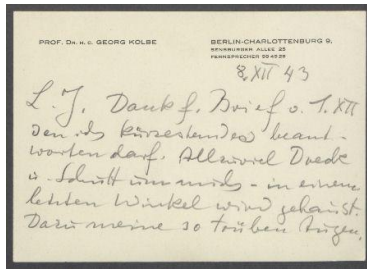 PROF. DR. H. C. GEORG KOLBE
BERLIN-CHARLOTTENBURG 9,
SENSBURGER ALLEE 25
FERNSPRECHER 99 45 29
8. XII 43
L. J. Dank f. Brief v. 1. XII
den ich kürzestens beant-
worten darf. Dreck
u. Schutt um mich - in einem
letzten Winkel wird gehaust.
Dazu meine so trüben Augen.